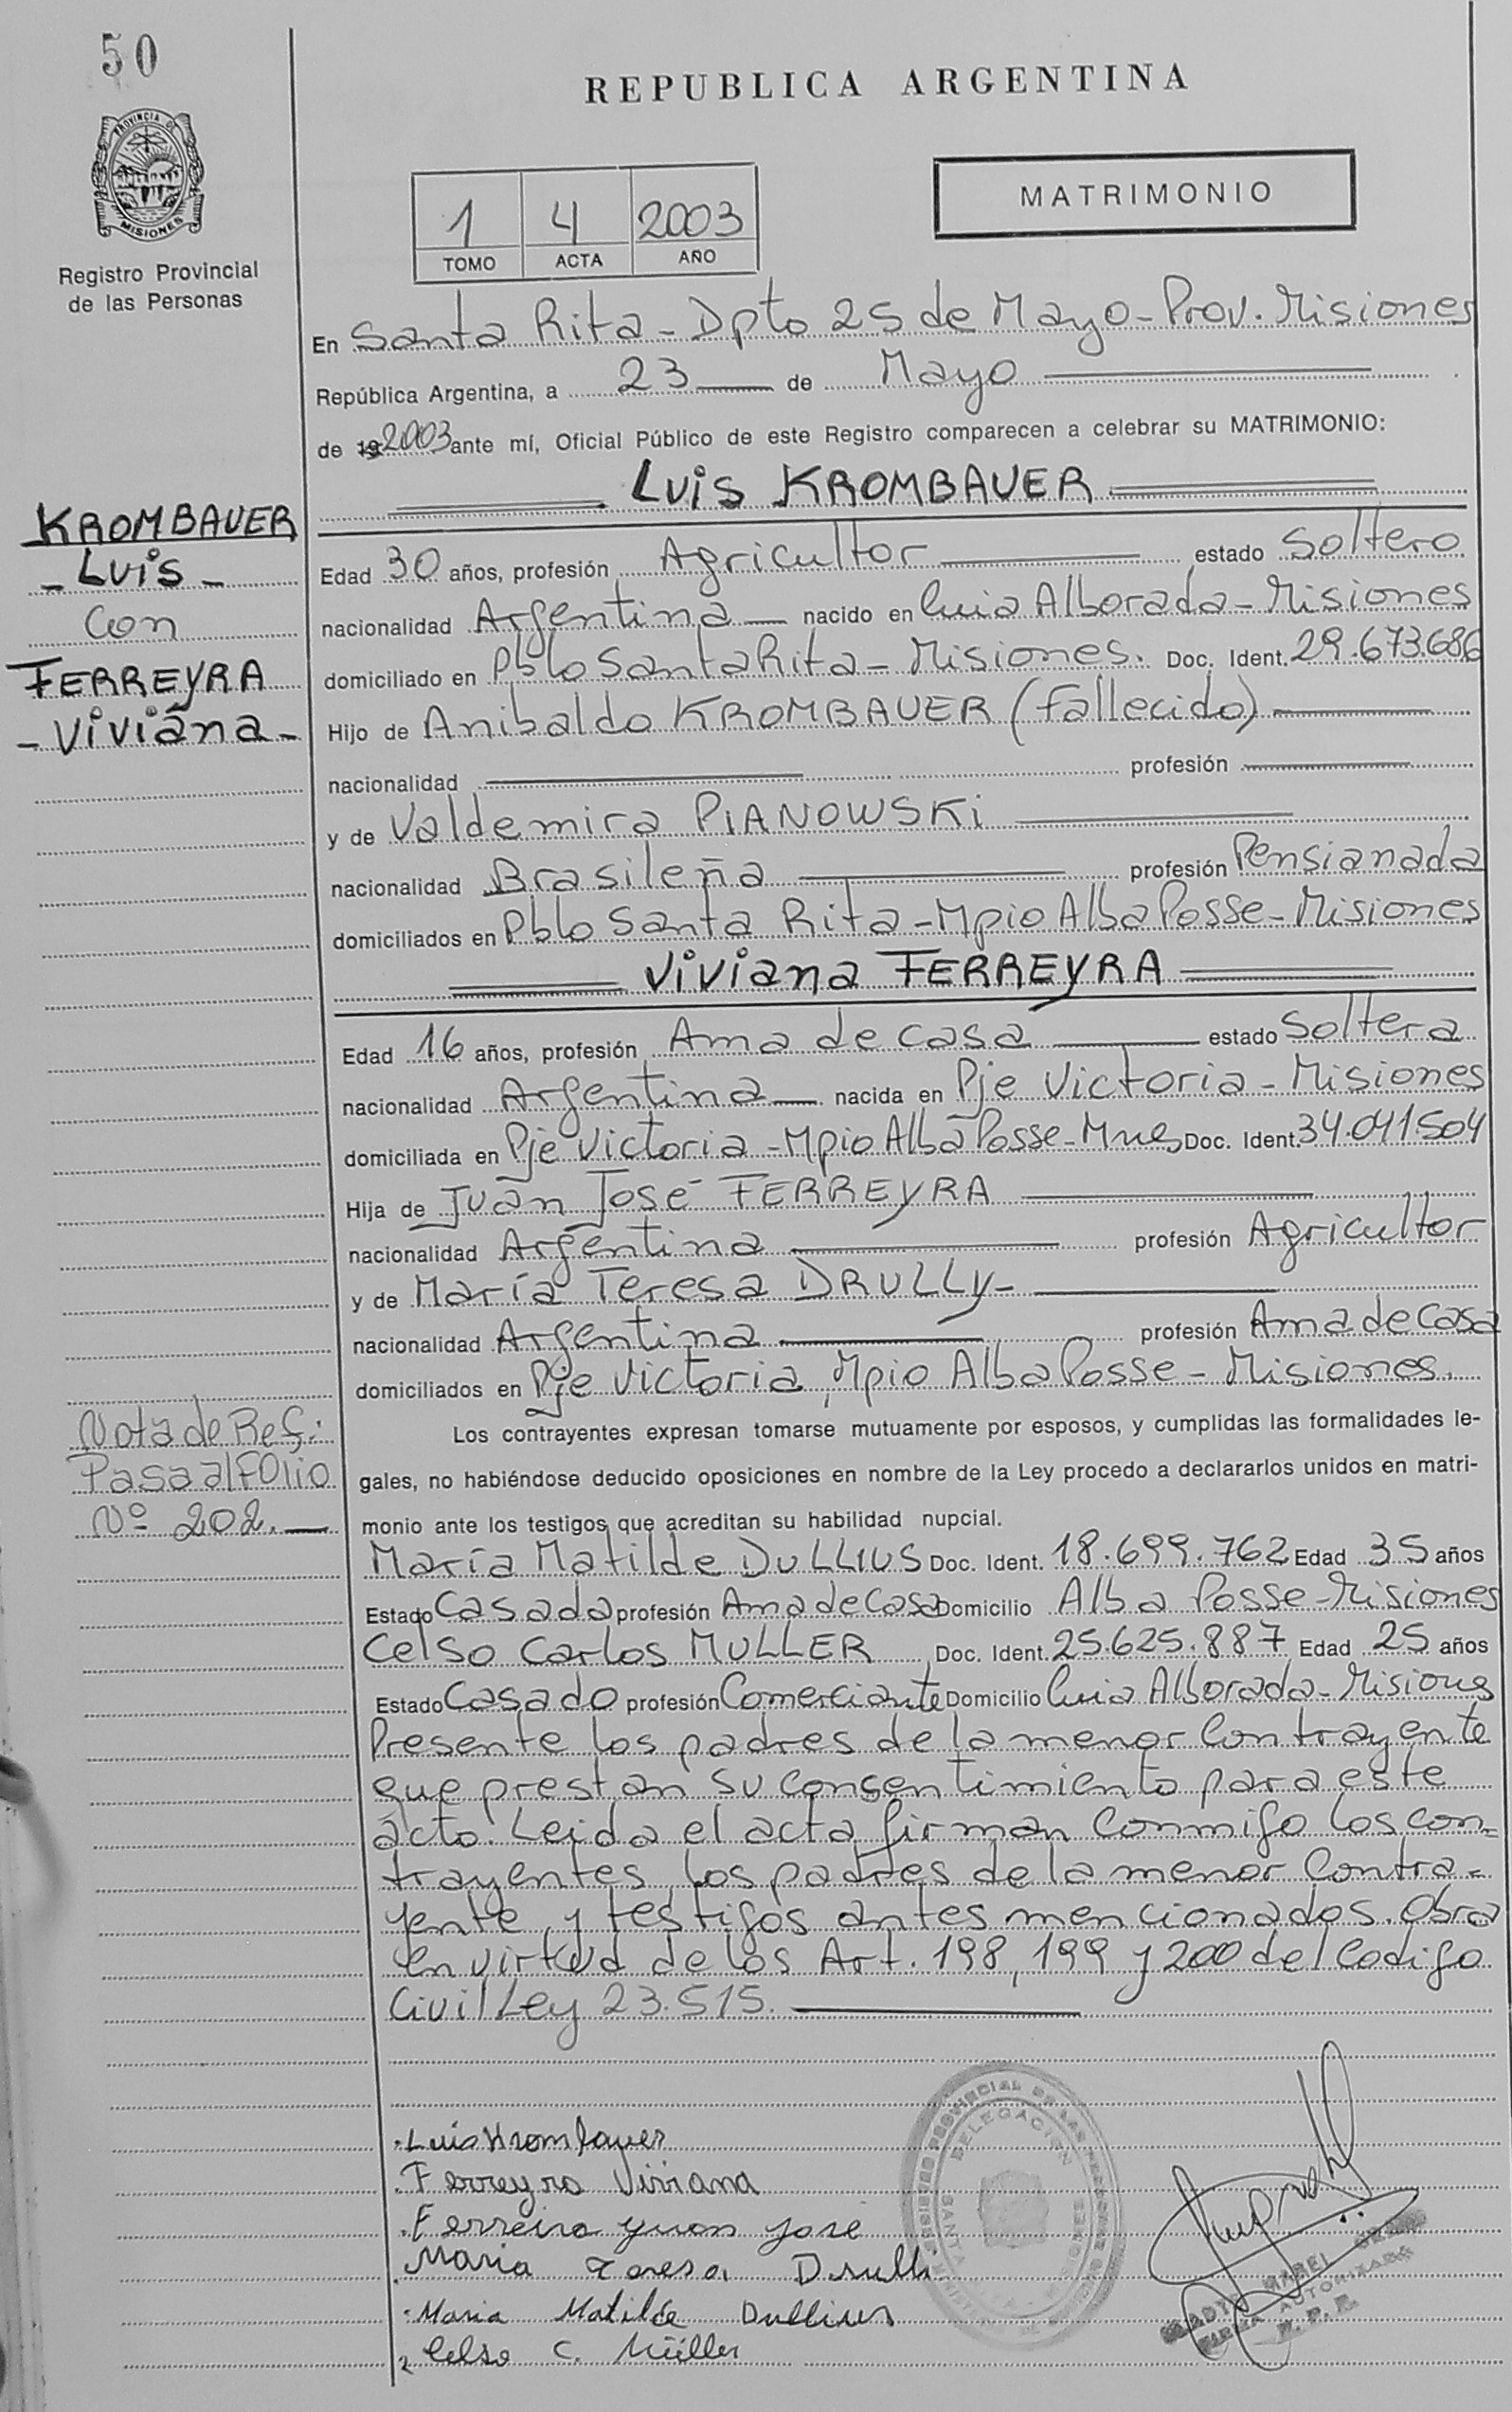 50
REPUBLICA ARGENTINA
PROVINCIA DE
MISIONES
Registro Provincial
de las Personas
1 4 2003
TOMO ACTA AÑO
MATRIMONIO
En Santa Rita - Dpto 25 de Mayo - Prov. Misiones
República Argentina, a 23 de Mayo
de 19 2003 ante mí, Oficial Público de este Registro comparecen a celebrar su MATRIMONIO:
Luis KROMBAUER
KROMBAUER
- Luis -
Con
FERREYRA
- Viviana -
Edad 30 años, profesión Agricultor estado Soltero
nacionalidad Argentina nacido en Cnia Alborada - Misiones
domiciliado en Pblo Santa Rita - Misiones. Doc. Ident. 29.673.686
Hijo de Anibaldo KROMBAUER (fallecido)
nacionalidad profesión
y de Valdemira PIANOWSKi
nacionalidad Brasileña profesión Pensianada
domiciliados en Pblo Santa Rita - Mpio Alba Posse - Misiones
Viviana FERREYRA
Edad 16 años, profesión Ama de casa estado Soltera
nacionalidad Argentina nacida en Pje Victoria - Misiones
domiciliada en Pje Victoria - Mpio Alba Posse - Mnes Doc. Ident. 34.041.504
Hija de Juan José FERREYRA
nacionalidad Argentina profesión Agricultor
y de María Teresa DRULLY -
nacionalidad Argentina profesión Ama de Casa
domiciliados en Pje Victoria, Mpio Alba Posse - Misiones.
Nota de Ref:
Pasa al FOlio
Nº 202.
Los contrayentes expresan tomarse mutuamente por esposos, y cumplidas las formalidades le-
gales, no habiéndose deducido oposiciones en nombre de la Ley procedo a declararlos unidos en matri-
monio ante los testigos que acreditan su habilidad nupcial.
María Matilde DULLIUS Doc. Ident. 18.699.762 Edad 35 años
Estado Casada profesión Ama de Casa Domicilio Alba Posse - Misiones
Celso Carlos MULLER Doc. Ident. 25.625.887 Edad 25 años
Estado Casado profesión Comerciante Domicilio Cnia Alborada - Misiones
Presente los padres de la menor Contrayente
que prestan su consentimiento para este
acto. Leida el acta firman Conmigo los con=
trayentes, los padres de la menor Contra=
yente, y testigos antes mencionados. Obra
en virtud de los Art. 198, 199 y 200 del Codigo
Civil Ley 23.515.
Luis Krombauer
Ferreyra Viviana
Ferreira Juan José
Maria Teresa Drulli
Maria Matilde Dullius
Celso C. Müller
REGISTRO PROVINCIAL DE LAS PERSONAS
DELEGACION
SANTA
MISIONES
MABEL
FIRMA AUTORIZADA
R. P. P.